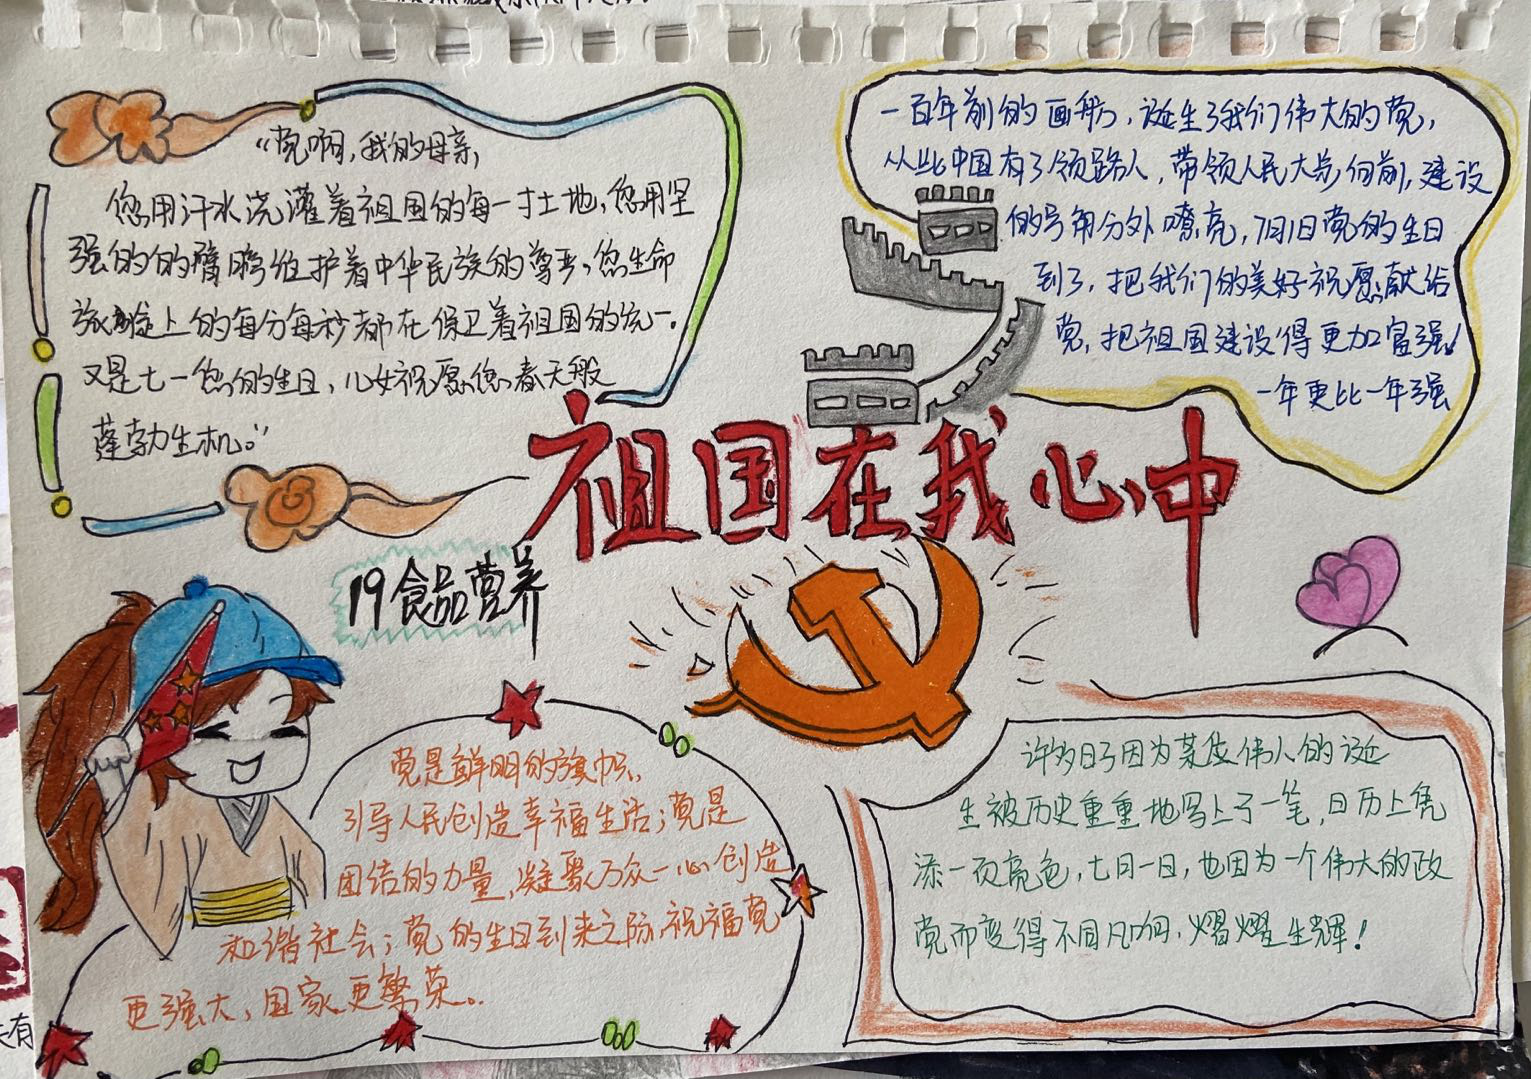 “党啊,我的母亲,
您用汗水浇灌着祖国的每一寸土地,您用坚
强的的臂膀维护着中华民族的尊严,您生命
上的每分每秒都在保卫着祖国的统一。
又是七一您的生日,儿女祝愿您春天般
蓬勃生机。”
一百年前的画舫,诞生了我们伟大的党,
从此中国有了领路人,带领人民大步向前,建设
的号角分外嘹亮,7月1日党的生日
到了,把我们的美好祝愿献给
党,把祖国建设得更加富强!
一年更比一年强
祖国在我心中
19食品营养
党是鲜明的旗帜,
引导人民创造幸福生活;党是
团结的力量,凝聚万众一心创造
和谐社会;党的生日到来之际,祝福党
更强大,国家更繁荣。
许多日子因为某位伟人的诞
生被历史重重地写上了一笔,日历上凭
添一页亮色,七月一日,也因为一个伟大的政
党而变得不同凡响,熠熠生辉!